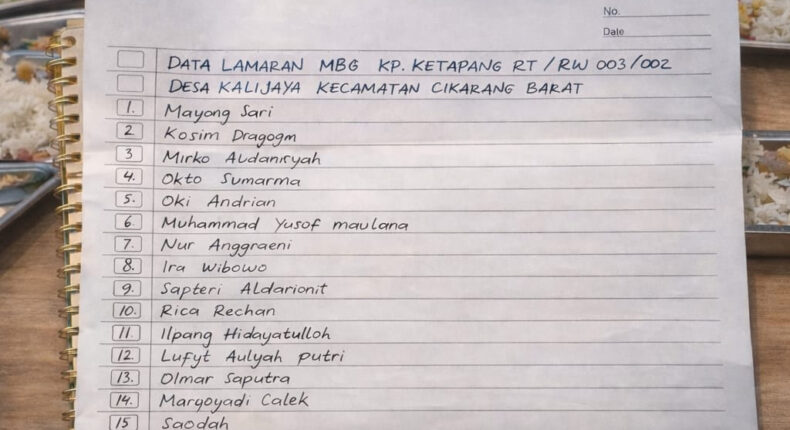 No.
Date
DATA LAMARAN MBG KP. KETAPANG RT / RW 003/002
DESA KALIJAYA KECAMATAN CIKARANG BARAT
1. Mayong Sari
2 Kosim Dragogm
3 Mirko Aldanisyah
4. Okto Sumarma
5. Oki Andrian
6. Muhammad Yusof maulana
7. Nur Anggraeni
8. Ira Wibowo
9. Sapteri Aldarionit
10. Rica Rechan
11. Ilpang Hidayatulloh
12. Lufyt Aulyah putri
13. Olmar Saputra
14. Maryoyadi Calek
15 Saodah